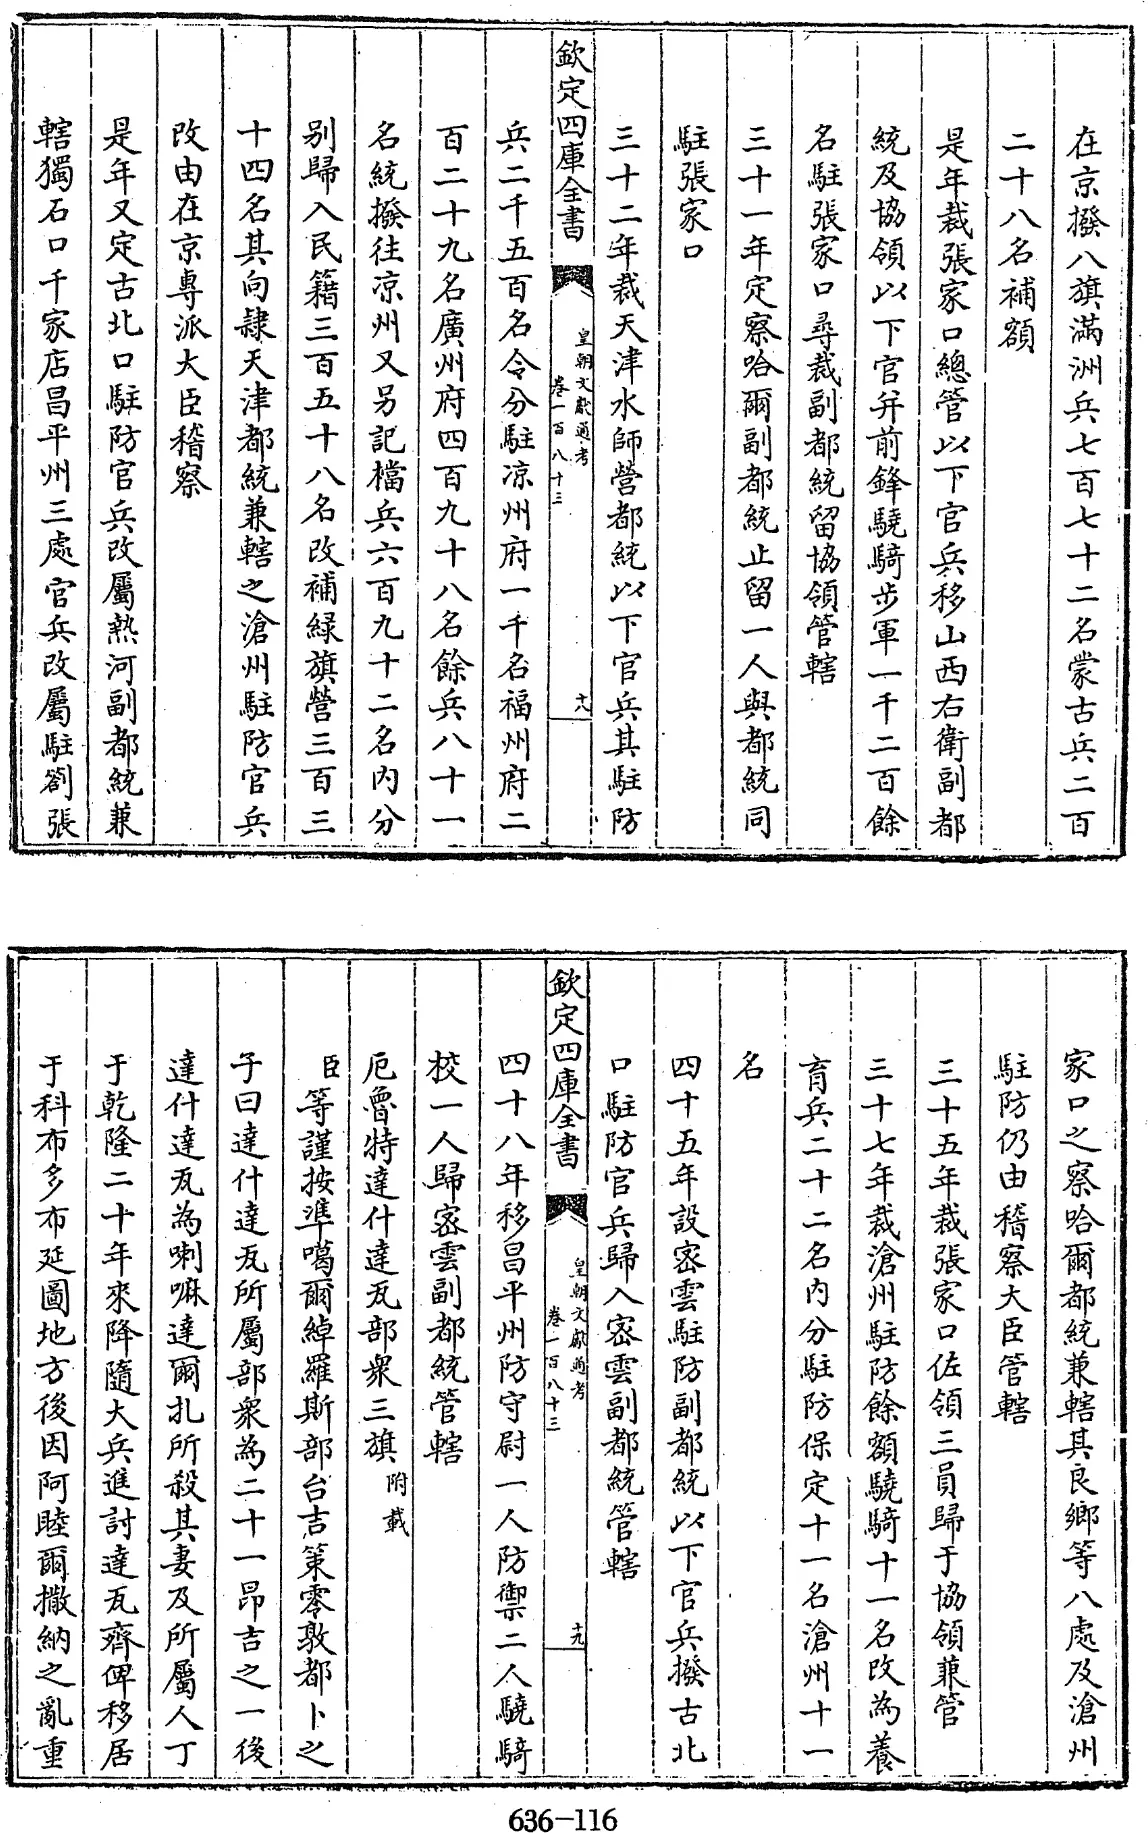 在京撥八旗滿洲兵七百七十二名蒙古兵二百
二十八名補額
是年裁張家口總管以下官兵移山西右衛副都
統及協領以下官并前鋒驍騎步軍一千二百餘
名駐張家口尋裁副都統留協領管轄
三十一年定察哈爾副都統止留一人與都統同
駐張家口
三十二年裁天津水師營都統以下官兵其駐防
欽定四庫全書
皇朝文獻通考
卷一百八十三
十八
兵二千五百名令分駐凉州府一千名福州府二
百二十九名廣州府四百九十八名餘兵八十一
名統撥往凉州又另記檔兵六百九十二名内分
別歸入民籍三百五十八名改補緑旗營三百三
十四名其向隸天津都統兼轄之滄州駐防官兵
改由在京專派大臣稽察
是年又定古北口駐防官兵改屬熱河副都統兼
轄獨石口千家店昌平州三處官兵改屬駐劄張
家口之察哈爾都統兼轄其良鄉等八處及滄州
駐防仍由稽察大臣管轄
三十五年裁張家口佐領三員歸于協領兼管
三十七年裁滄州駐防餘額驍騎十一名改為養
育兵二十二名内分駐防保定十一名滄州十一
名
四十五年設密雲駐防副都統以下官兵撥古北
口駐防官兵歸入密雲副都統管轄
欽定四庫全書
皇朝文獻通考
卷一百八十三
十九
四十八年移昌平州防守尉一人防禦二人驍騎
校一人歸密雲副都統管轄
厄魯特達什達瓦部衆三旗附載
臣等謹按準噶爾綽羅斯部台吉策零敦都卜之
子曰達什達瓦所屬部衆為二十一昂吉之一後
達什達瓦為喇嘛達爾扎所殺其妻及所屬人丁
于乾隆二十年來降隨大兵進討達瓦齊俾移居
于科布多布延圖地方後因阿睦爾撒納之亂重
636-116